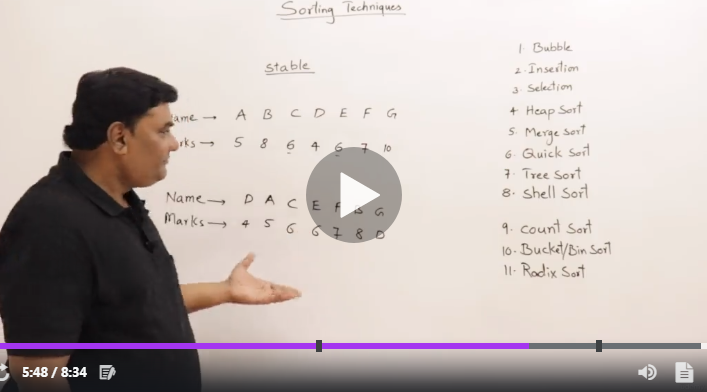 Sorting Techniques
stable
Name → A B C D E F G
Marks → 5 8 6 4 6 7 10
Name → D A C E F B G
Marks → 4 5 6 6 7 8
1. Bubble
2. Insertion
3. Selection
4 Heap Sort
5. Merge Sort
6. Quick Sort
7. Tree Sort
8. Shell Sort
9. Count Sort
10. Bucket/Bin Sort
11. Radix Sort
5:48 / 8:34